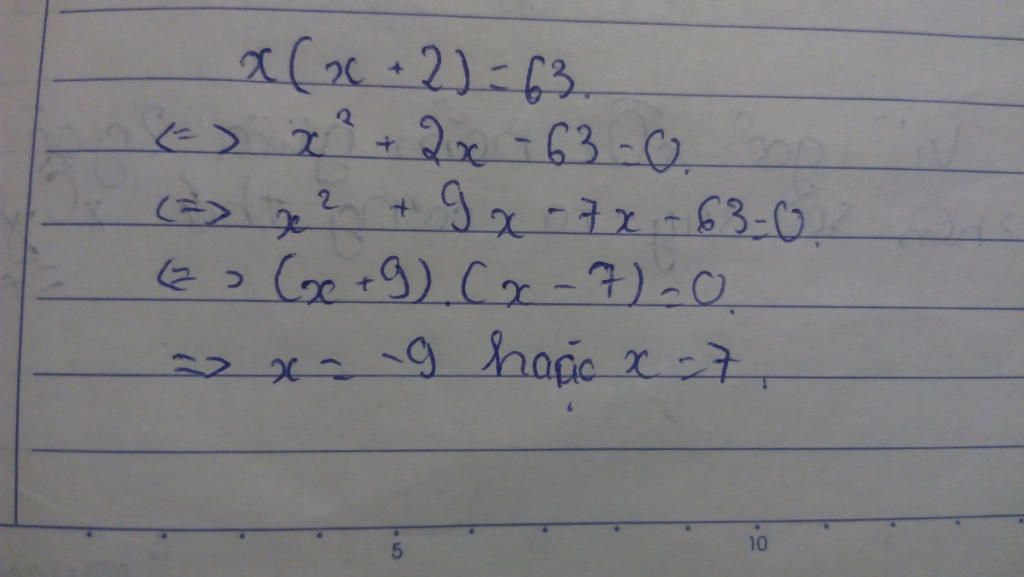 x(x + 2) = 63.
<=> x² + 2x - 63 = 0.
<=> x² + 9x - 7x - 63 = 0.
<=> (x + 9).(x - 7) = 0.
=> x = -9 hoặc x = 7.
5 10